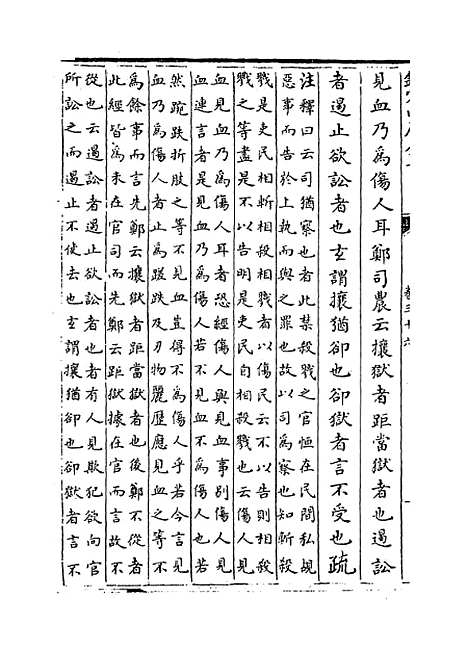 卷三十六
見血乃為傷人耳鄭司農云攘獄者距當獄者也遏訟
者遏止欲訟者也玄謂攘猶卻也卻獄者言不受也疏
注釋曰云司猶察也者此禁殺戮之官恒在民間私覘
惡事而告於上執而與之罪也故以司為察也知斬殺
戮是吏民相斬相殺相戮者以傷民云不以告則相殺
戮之等盡是不以告明是吏民自相殺戮也云傷人見
血見血乃為傷人耳者恐經傷人與見血事別傷人見
血連言者是見血乃為傷人若不見血不為傷人也若
然跌折肢之等不見血豈得不為傷人乎若今言見
血乃為傷人者止為蹉跌及刃物麗歴應見血之等不
為餘事而言先鄭云攘獄者距當獄者也後鄭不從者
此經皆為未在官司而先鄭云距獄據在官而言故不
從也云遏訟者遏止欲訟者也者有人見欺犯欲向官
所訟之而遏止不使去也玄謂攘猶卻也卻獄者言不